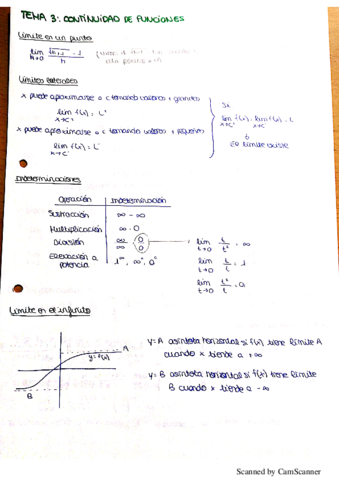 TEMA 3: CONTINUIDAD DE FUNCIONES
Límite en un punto
lim h→0 √(h+1) - 1 / h
Límites laterales
x puede aproximarse a c tomando valores + grandes
lim f(x) = L⁺
x→c⁺
x puede aproximarse a c tomando valores + pequeños
lim f(x) = L⁻
x→c⁻
Si
lim f(x) = lim f(x) = L
x→c⁺ x→c⁻
el límite existe
Indeterminaciones
Operación Indeterminación
Sustracción ∞ - ∞
Multiplicación ∞ · 0
División ∞/∞ 0/0
Elevación a potencia 1^∞, ∞⁰, 0⁰
lim t→0 t/t² = ∞
lim t→0 t/t = 1
lim t→0 t²/t = 0
Límite en el infinito
A
y=f(x)
B
y=A asíntota horizontal si f(x) tiene límite A
cuando x tiende a +∞
y=B asíntota horizontal si f(x) tiene límite
B cuando x tiende a -∞
Scanned by CamScanner